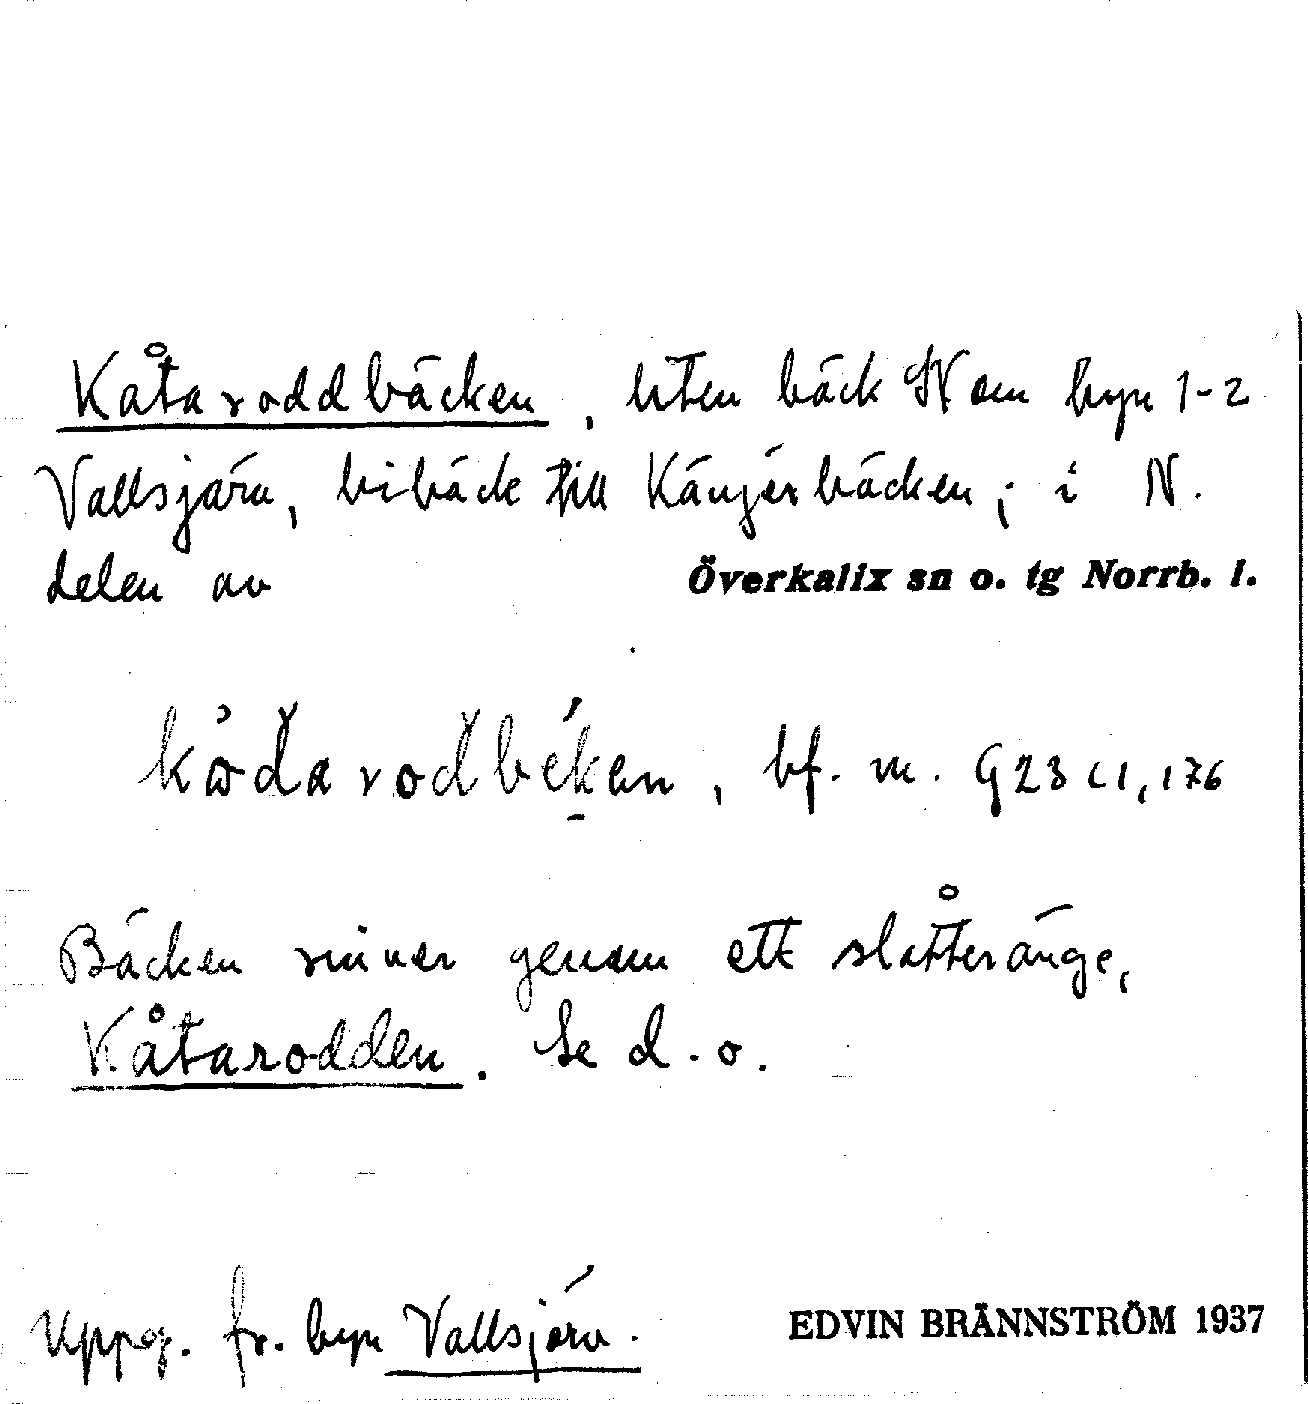 Kåtaroddbäcken, liten bäck SV om byn 1-2
Vallsjärv, bibäck till Kängérbäcken; i N.
delen av Överkalix sn o. tg Norrb. l.
bf. m. G23 c1, 176
Bäcken rinner genom ett slåtteränge,
Kåtarodden. Se d.o.
Uppg. fr. byn Vallsjärv.
EDVIN BRÄNNSTRÖM 1937